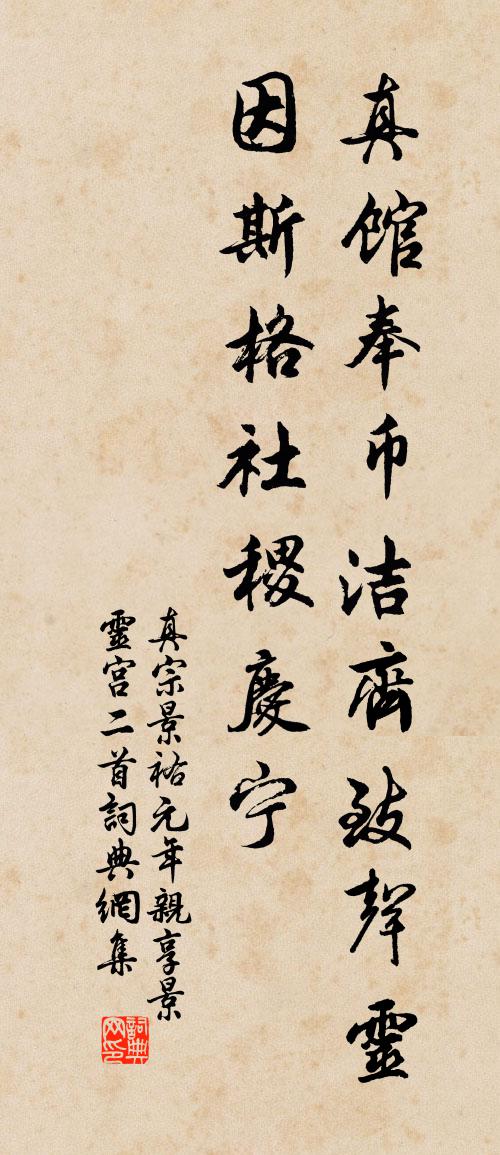 真館奉币洁齊致聲靈
因斯格社稷慶宁
真宗景祐元年親享景
靈宫二首詞典網集
詞典
网印